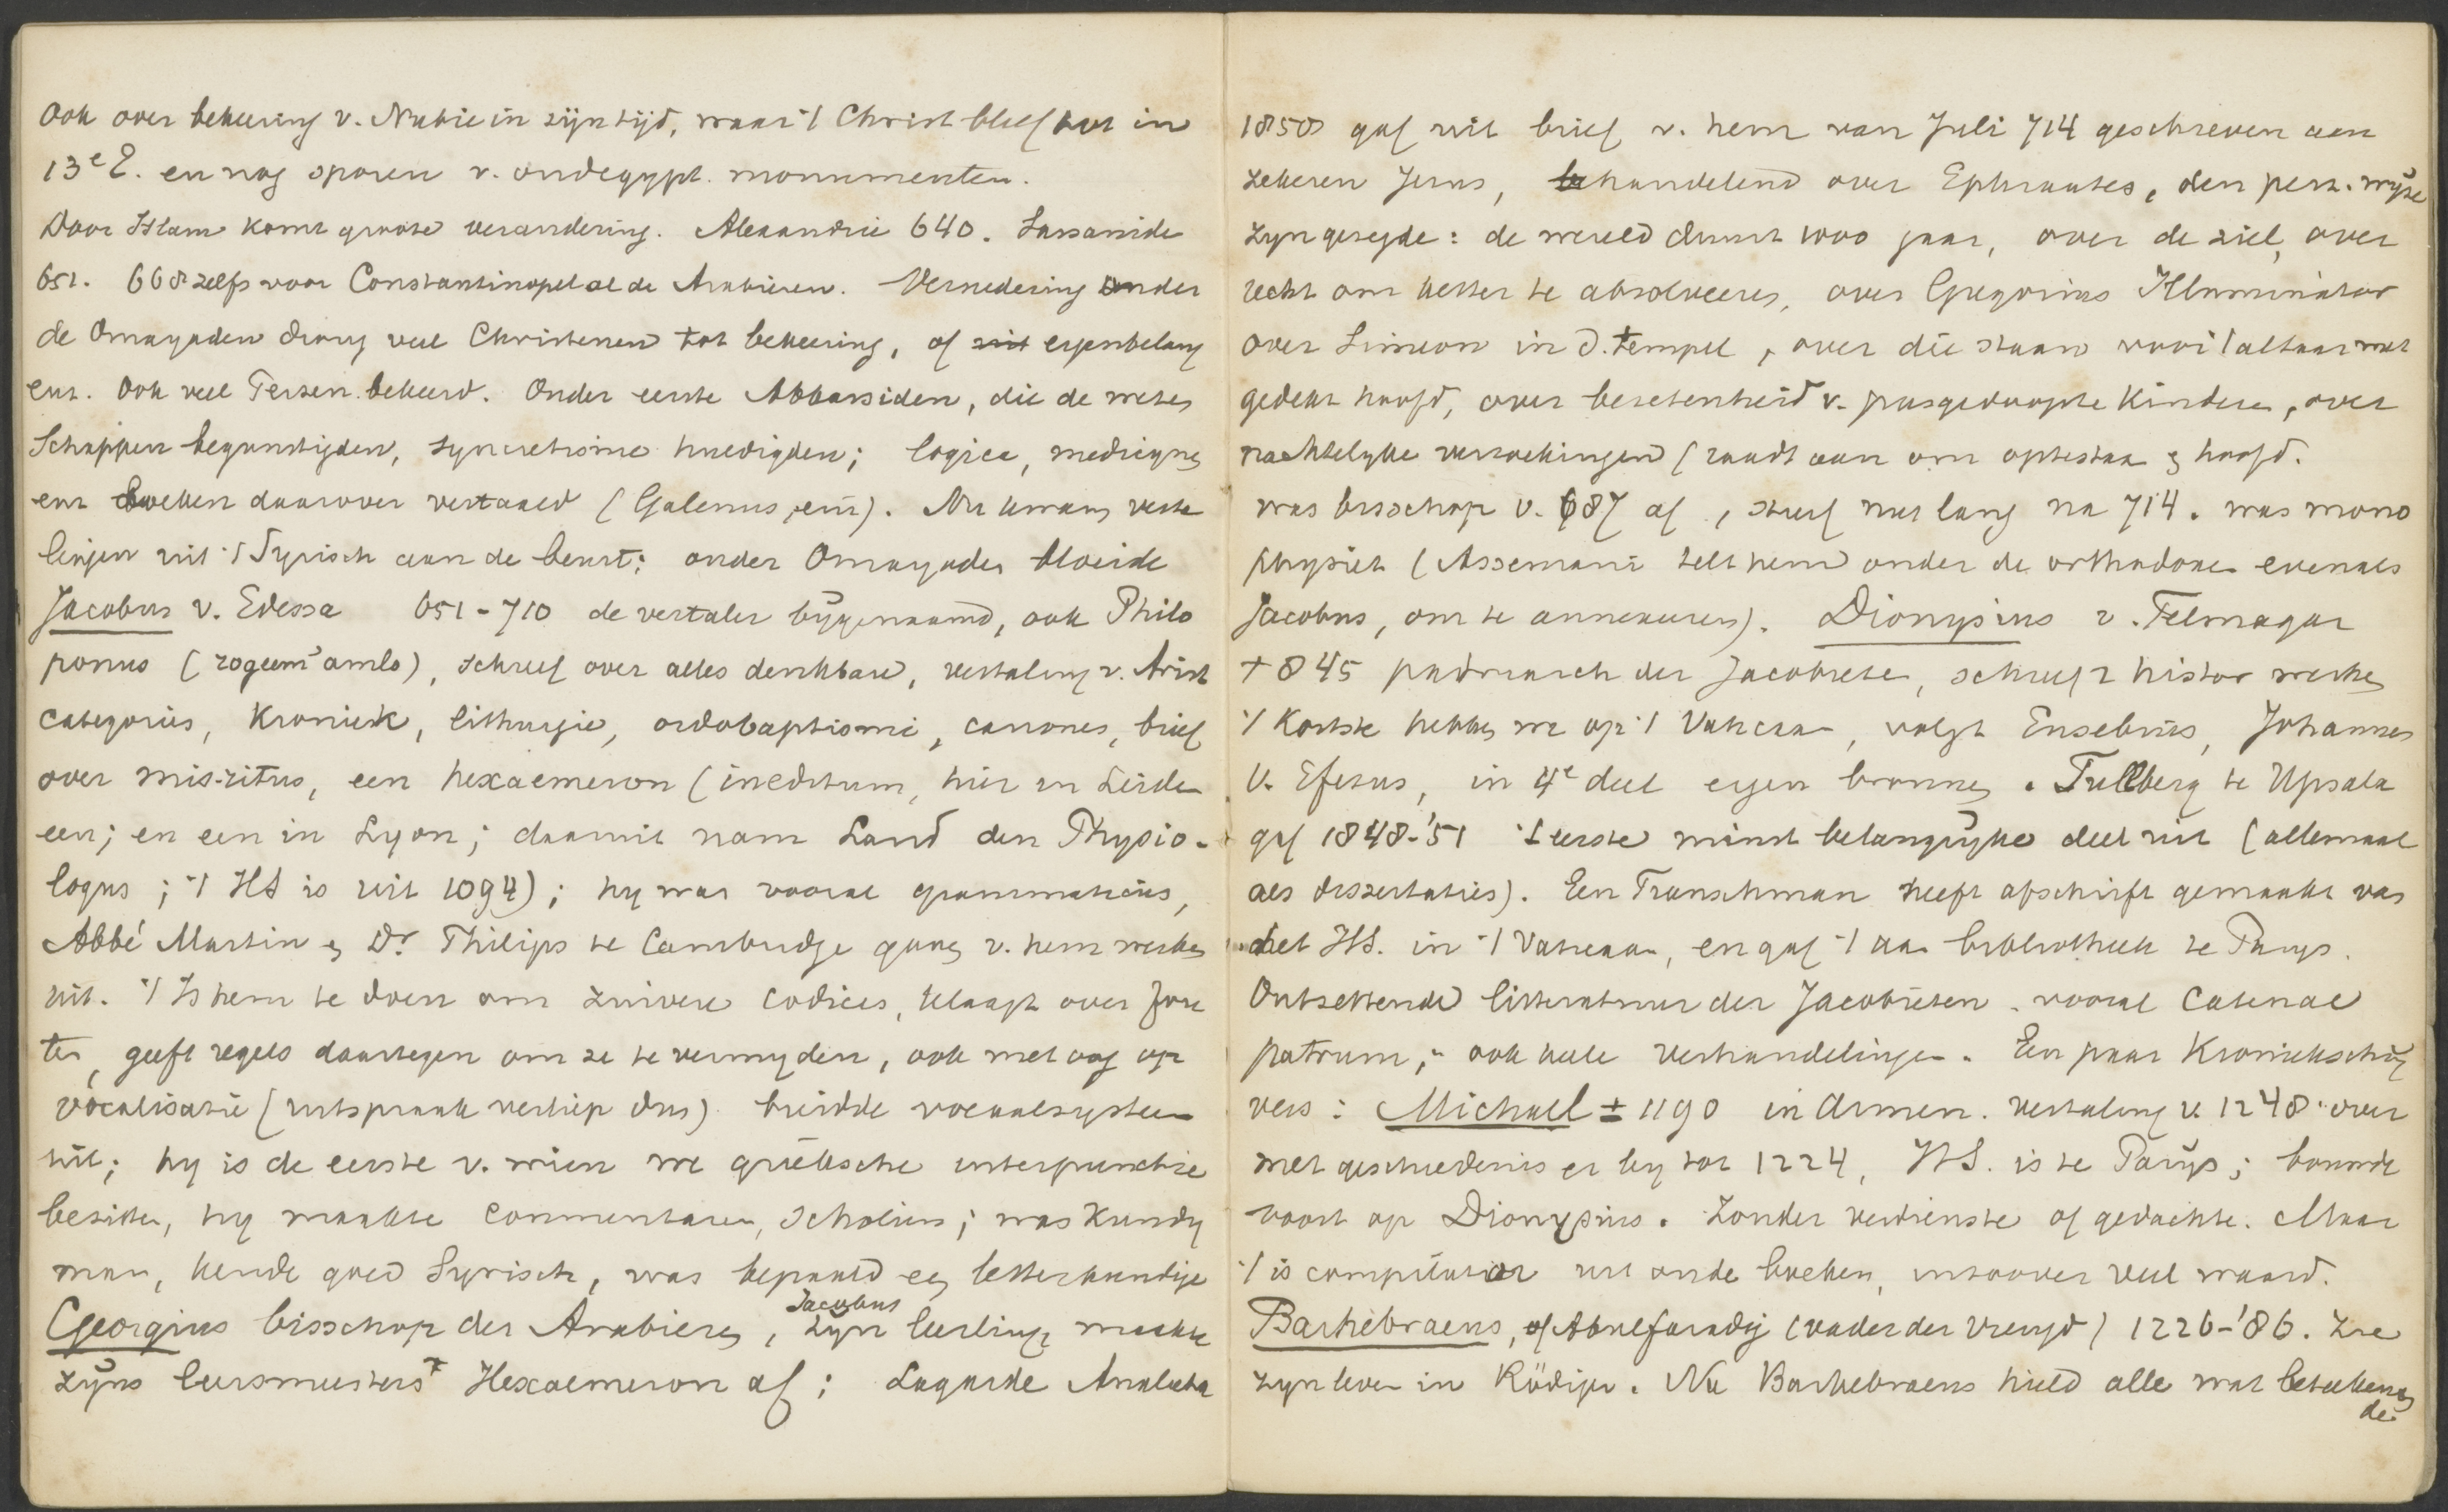 Ook over bekeering v. Nubie in zijn tijd, waar 't Christ bleef tot in
13e E. en nog sporen v. oudegypt. monumenten.
Door Islam komt groote verandering. Alexandrie 640. Sassanide
651. 668 zelfs voor Constantinopel al de Arabieren. Vernedering onder
de Omayaden drong veel Christenen tot bekeering, of uit eigenbelang
enz. Ook veel Perzen bekeerd. Onder eerste Abbassiden, die de weten
schappen begunstigden, syncretisme huldigden; logica, medicijnen
enz boeken daarover vertaald (Galenus, enz). Nu kwam verta
lingen uit 't Syrisch aan de beurt; onder Omayaden bloeide
Jacobus v. Edessa 651-710 de vertaler bijgenaamd, ook Philo
ponus (rogeem amlo), schreef over alles denkbare, vertaling v. Arist
categoriës, Kroniek, lithurgie, ordobaptismi, canones, brief
over mis-ritus, een hexaemeron (ineditum, hier in Leiden
een; en een in Lyon; daaruit nam Land den Physio-
logus; 't HS is uit 1094); hij was vooral grammaticus,
Abbé Martin en Dr. Philips te Cambridge gaven v. hem werken
uit. 't Is hem te doen om zuivere codices, klaagt over fou
ten, geeft regels daartegen om ze te vermyden, ook met oog op
vocalisatie (uitspraak verliep dus) breidde vocaalsysteem
uit; hy is de eerste v. wien we grieksche interpunctie
bezitten, hy maakte commentaren, Scholien; was kundig
man, kende goed Syrisch, was bepaald een letterkundige
Georgius bisschop der Arabieren, Jacobus zyn leerling maakte
zijns leermeesters Hexaemeron af; Lagarde Analecta
1858 gaf uit brief v. hem van Juli 714 geschreven aan
zekeren Jesus, behandelend over Ephraates, den perz. wijze
zyn gezegde: de wereld duurt 1000 jaar, over de ziel, over
recht om ketter te absolveeren, over Gregorius Illuminator
over Simeon in d. tempel, over die staan voor 't altaar met
gedekt hoofd, over bezetenheid v. pasgedoopte kinderen, over
nachtelyke verzoekingen (raadt aan om optestaan en hoofd.
was bisschop v. 687 af, stierf niet lang na 714. was mono
physiet (Assemani telt hem onder de orthodoxen evenals
Jacobus, om te annexeren). Dionysius v. Telmagar
+ 845 patriarch der Jacobieten, schreef 2 histor werken
't Kortste hebben we op 't Vaticaan, volgt Eusebius, Johannes
v. Efesus, in 4e deel eigen bronnen. Tullberg te Upsala
gaf 1848-'51 't eerste minst belangrijke deel uit (allemaal
als dissertaties). Een Franschman heeft afschrift gemaakt van
het HS. in 't Vaticaan, en gaf 't aan bibliotheek te Parys.
Ontzettende litteratuur der Jacobieten, vooral catenae
patrum, ook vele verhandelingen. Een paar Kroniekschrij
vers: Michael ± 1190 in Armen. vertaling v. 1248 over
met geschiedenis er by tot 1224, HS. is te Parijs; bouwde
voort op Dionysius. Zonder verdienste of gedachte. Maar
't is compilator uit oude boeken, inzoover veel waard.
Barhebraeus, of Abulfaradj (vader der vreugd) 1226-'86. Zie
zyn leven in Rödiger. Nu Barhebraeus hield alle wat beteekenen
de